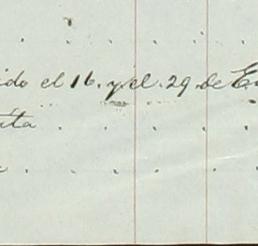 ido el 16. y el. 29 de E
ta